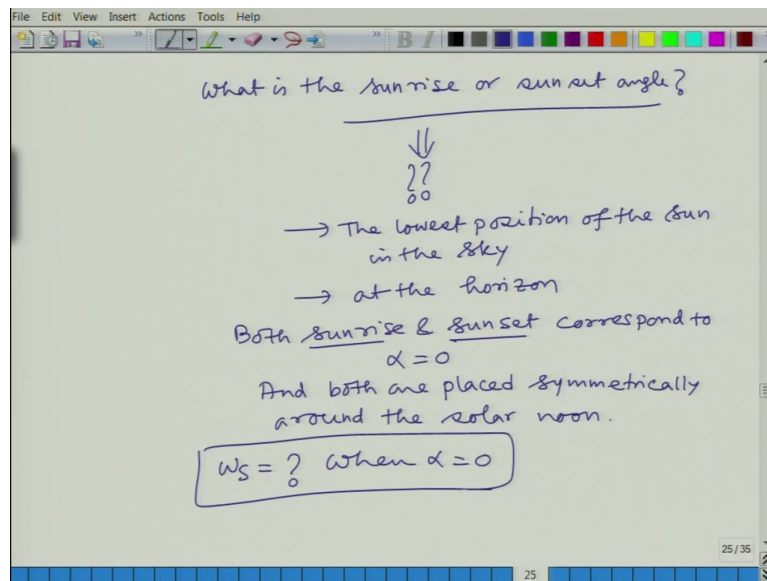 File Edit View Insert Actions Tools Help
What is the sunrise or sunset angle?
??
→ The lowest position of the sun
in the sky
→ at the horizon
Both sunrise & sunset correspond to
α = 0
And both are placed symmetrically
around the solar noon.
ωs = ? when α = 0
25/35
25